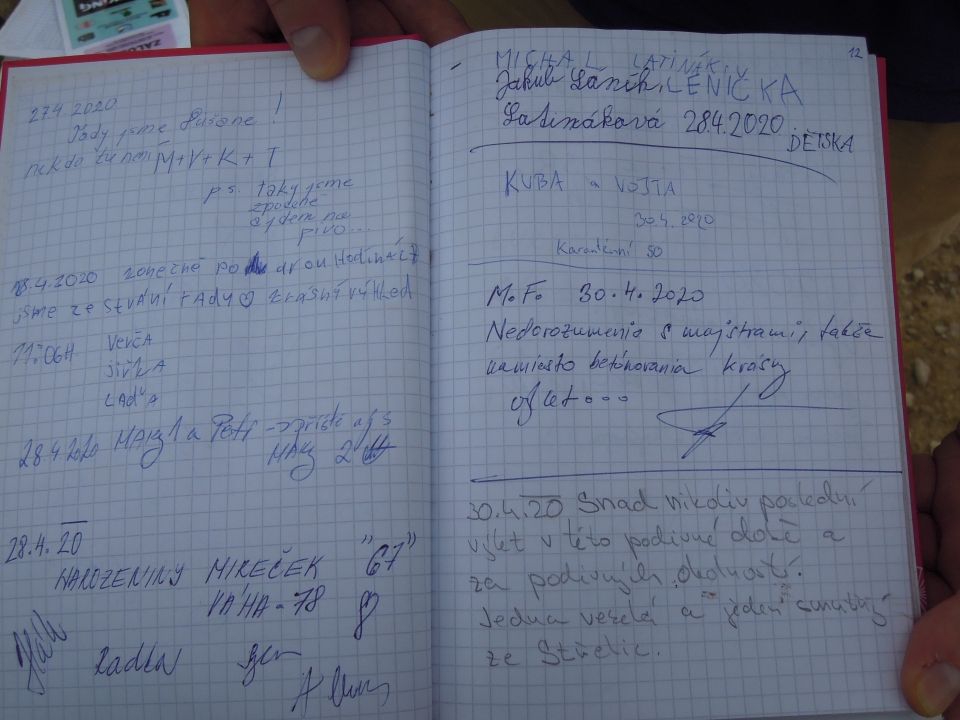 27.4.2020
Tady jsme Dušane!
nekdo tu není M+V+K+T
p.s. taky jsme
zpocené
a jdem na
pivo...
28.4.2020 konečně po dvou hodinách
jsme ze stvání tady ♡ krásný výhled
11:06H Verča
Jiřka
Laďa
28.4.2020 a Petr - příště aj s
2
28.4.20
NAROZENINY MIREČEK "67"
VÁHA - 78
Radka
12
MICHAL LATINÁK,
Jakub Láník, LENIČKA
Latináková 28.4.2020
DĚTSKA
KUBA a VOJTA
30.4.2020
Karanténní 50
M.F. 30.4.2020
Nedorozumenia s majstrami, takže
namiesto betónovania krásny
výlet...
30.4.20 Snad nikoliv poslední
výlet v této podivné době a
za podivných okolností.
Jedna veselá a jeden smutný
ze Střelic.